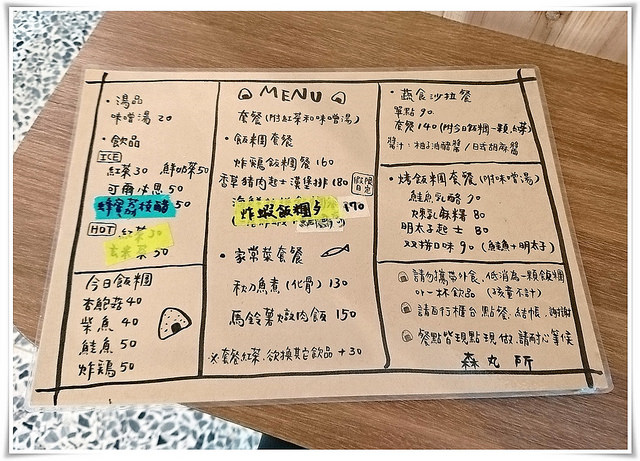 ・湯品
味噌湯 20
・飲品
ICE
紅茶30 鮮奶茶50
可爾必思 50
蜂蜜荔枝醋 50
HOT 紅茶 30
玄米茶 50
今日飯糰
杏鮑菇 40
柴魚 40
鮭魚 50
炸鷄 50
MENU
套餐(附紅茶和味噌湯)
・飯糰套餐
炸鷄飯糰餐 160
香草豬肉起士漢堡排 180 假日限定
炸蝦飯糰 170
・家常菜套餐
秋刀魚煮(化骨) 130
馬鈴薯燉肉飯 150
※套餐紅茶,欲換其它飲品 +30
・蔬食沙拉餐
單點 90
套餐 140 (附今日飯糰一顆,紅茶)
醬汁:柚子油醋醬/日式胡麻醬
・烤飯糰套餐(附味噌湯)
鮭魚乳酪 90
爆乳麻糬 80
明太子起士 80
双拼口味 90 (鮭魚+明太子)
請勿攜帶外食,低消為一顆飯糰
or一杯飲品 (孩童不計)
請自行櫃台點餐、結帳,謝謝
餐點皆現點現做,請耐心等候
森丸所